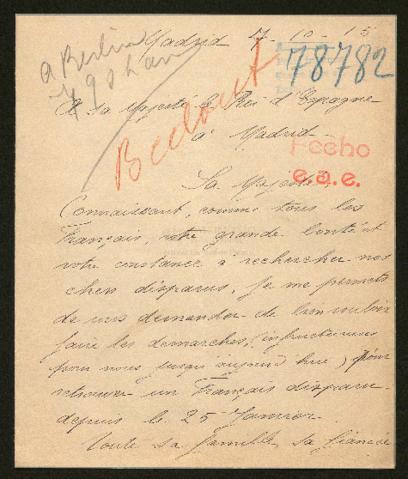 Madrid 7-10-15
a Berlin
78782
A Sa Majesté le Roi d'Espagne
à Madrid
Fecho
e.a.e.
Sa Majesté
Connaissant, comme tous les
Français, votre grande bonté et
votre constance à rechercher nos
chers disparus, je me permets
de vous demander de bien vouloir
faire les démarches, (infructueuses
pour nous jusqu'aujourd'hui) pour
retrouver un Français disparu
depuis le 25 Janvier
Toute sa famille, sa fiancée